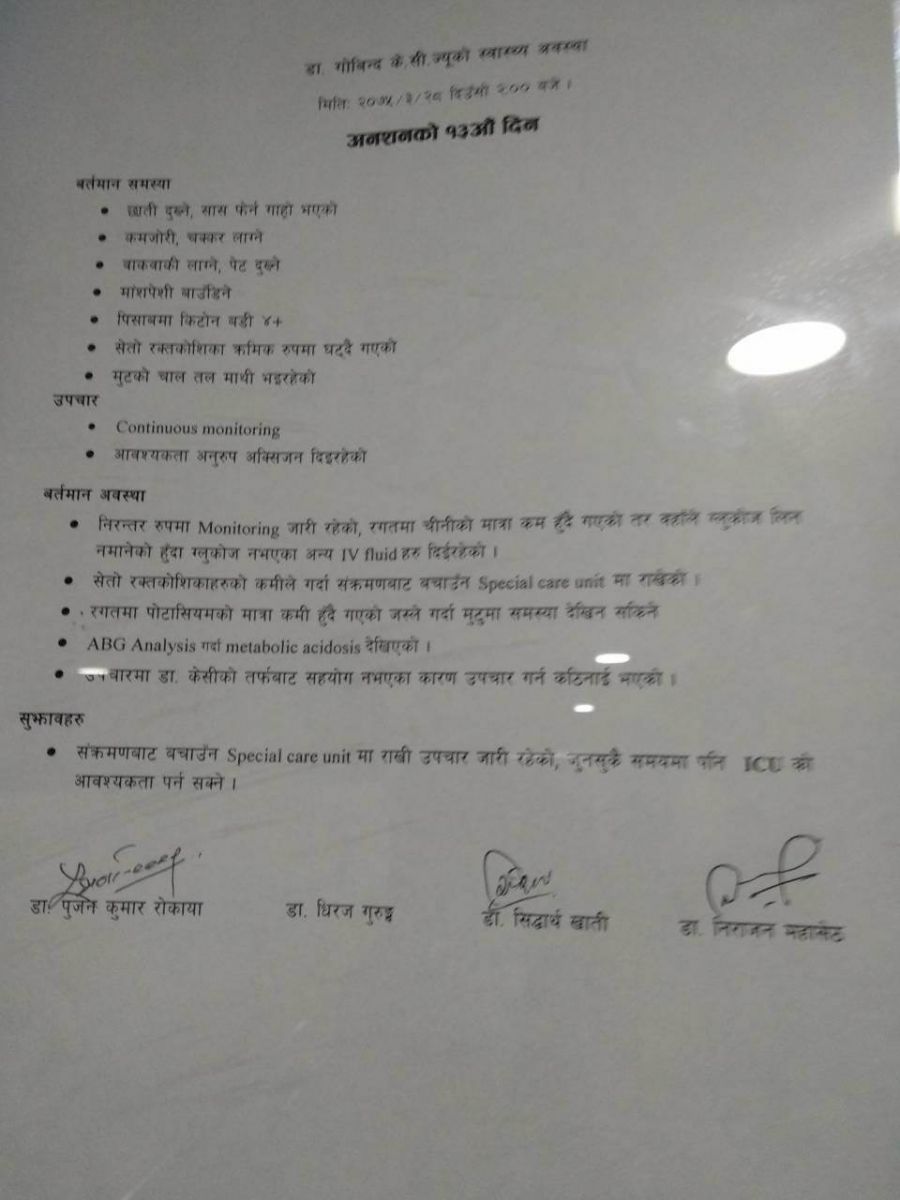 डा. गोबिन्द के.सी.ज्यूको स्वास्थ्य अवस्था
मिति: २०७५/३/२८ दिउँसो २:०० बजे ।
अनशनको १३औं दिन
बर्तमान समस्या
• छाती दुख्ने, सास फेर्न गाह्रो भएको
• कमजोरी, चक्कर लाग्ने
• वाकवाकी लाग्ने, पेट दुख्ने
• मांशपेशी बाउँडिने
• पिसाबमा किटोन बढी ४+
• सेतो रक्तकोशिका क्रमिक रुपमा घट्दै गएको
• मुटुको चाल तल माथी भइरहेको
उपचार
• Continuous monitoring
• आवश्यकता अनुरुप अक्सिजन दिइरहेको
बर्तमान अवस्था
• निरन्तर रुपमा Monitoring जारी रहेको, रगतमा चीनीको मात्रा कम हुँदै गएको तर वहाँले ग्लुकोज लिन
नमानेको हुँदा ग्लुकोज नभएका अन्य IV fluid हरु दिईरहेको ।
• सेतो रक्तकोशिकाहरुको कमीले गर्दा संक्रमणबाट बचाउँन Special care unit मा राखेको ।
• रगतमा पोटासियमको मात्रा कमी हुँदै गएको जस्ले गर्दा मुटुमा समस्या देखिन सकिने
• ABG Analysis गर्दा metabolic acidosis देखिएको ।
• उपचारमा डा. केसीको तर्फबाट सहयोग नभएका कारण उपचार गर्न कठिनाई भएको ।
सुझावहरु
• संक्रमणबाट बचाउँन Special care unit मा राखी उपचार जारी रहेको, जुनसुकै समयमा पनि ICU को
आवश्यकता पर्न सक्ने ।
डा. पुजन कुमार रोकाया डा. धिरज गुरुङ्ग डा. सिद्धार्थ खाती डा. निराजन महासेठ